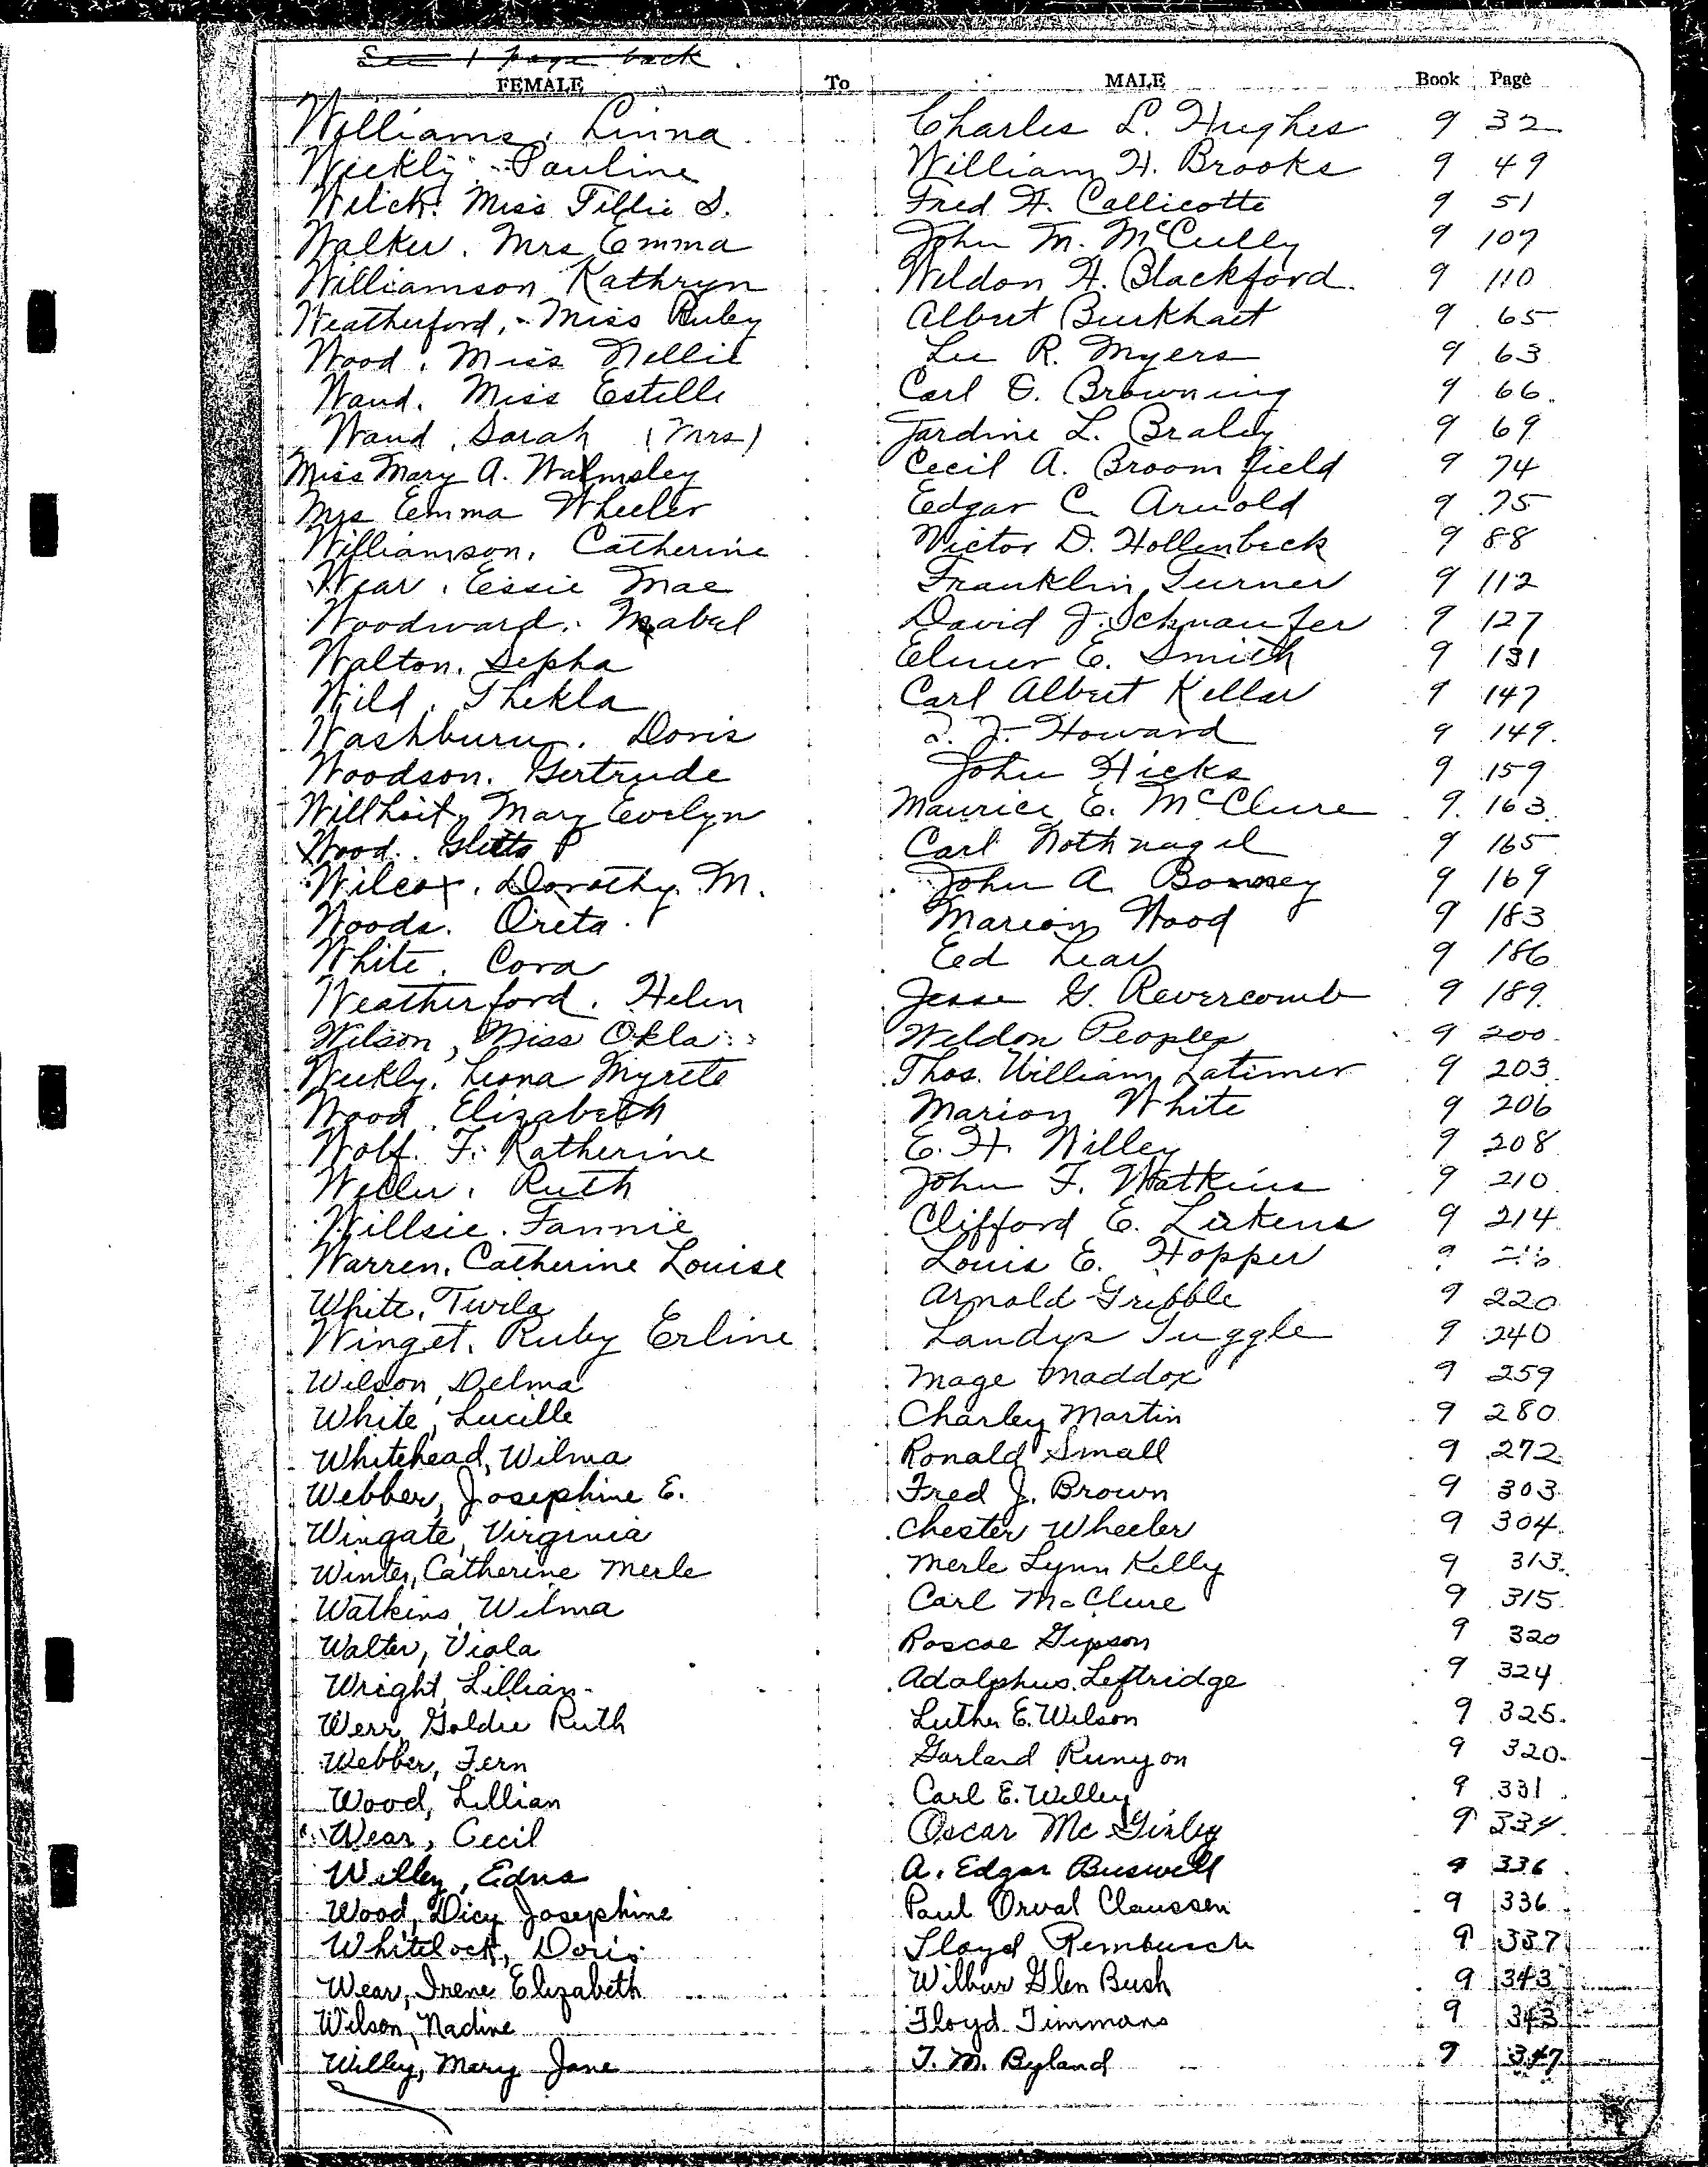 See 1 page back
FEMALE To MALE Book Page
Williams, Linna Charles L. Hughes 9 32
Weekly, Pauline William H. Brooks 9 49
Welch, Miss Tillie S. Fred H. Callicotte 9 51
Walker, Mrs Emma John M. McCully 9 107
Williamson Kathryn Weldon H. Blackford 9 110
Weatherford, Miss Ruby Albert Burkhart 9 65
Wood, Miss Nellie Lee R. Myers 9 63
Wand, Miss Estelle Carl O. Browning 9 66
Wand, Sarah (Mrs) Jardine L. Braley 9 69
Miss Mary A. Walmsley Cecil A. Broomfield 9 74
Mrs Emma Wheeler Edgar C. Arnold 9 75
Williamson, Catherine Victor D. Hollenbeck 9 88
Wear, Essie Mae Franklin Turner 9 112
Woodward, Mabel David J. Schnaufer 9 127
Walton, Sepha Elmer E. Smith 9 131
Wild, Thekla Carl Albert Kellar 9 147
Washburn, Doris T. J. Howard 9 149
Woodson, Gertrude John Hicks 9 159
Willhoit, Mary Evelyn Maurice E. McClure 9 163
Wood, P Carl Nothnagel 9 165
Wilcox, Dorothy M. John A. 9 169
Woods, Oreta Marion Wood 9 183
White, Cora Ed Lear 9 186
Weatherford, Helen Jesse G. Revercomb 9 189
Wilson, Miss Okla Weldon Peoples 9 200
Weekly, Leona Myrtle Thos. William Latimer 9 203
Wood, Elizabeth Marion White 9 206
Wolf, F. Katherine E. H. Willey 9 208
Weller, Ruth John F. Watkins 9 210
Willsie, Fannie Clifford E. Lukens 9 214
Warren, Catherine Louise Louis E. Hopper
White, Twila Arnold Gribble 9 220
Winget, Ruby Erline Landys Tuggle 9 240
Wilson, Delma Mage Maddox 9 259
White, Lucille Charley Martin 9 280
Whitehead, Wilma Ronald Small 9 272
Webber, Josephine E. Fred J. Brown 9 303
Wingate, Virginia Chester Wheeler 9 304
Winter, Catherine Merle Merle Lynn Kelly 9 313
Watkins, Wilma Carl McClure 9 315
Walter, Viola Roscoe Gipson 9 320
Wright, Lillian Adolphus Leftridge 9 324
Werr, Goldie Ruth Luther E. Wilson 9 325
Webber, Fern Garland Runyon 9 320
Wood, Lillian Carl E. Willey 9 331
Wear, Cecil Oscar McGinley 9 334
Willey, Edna A. Edgar Buswell 9 336
Wood, Dicy Josephine Paul Orval Claussen 9 336
Whitelock, Doris Lloyd Rembusch 9 337
Wear, Irene Elizabeth Wilbur Glen Bush 9 343
Wilson, Nadine Floyd Timmans 9 343
Willey, Mary Jane T. M. Byland 9 347